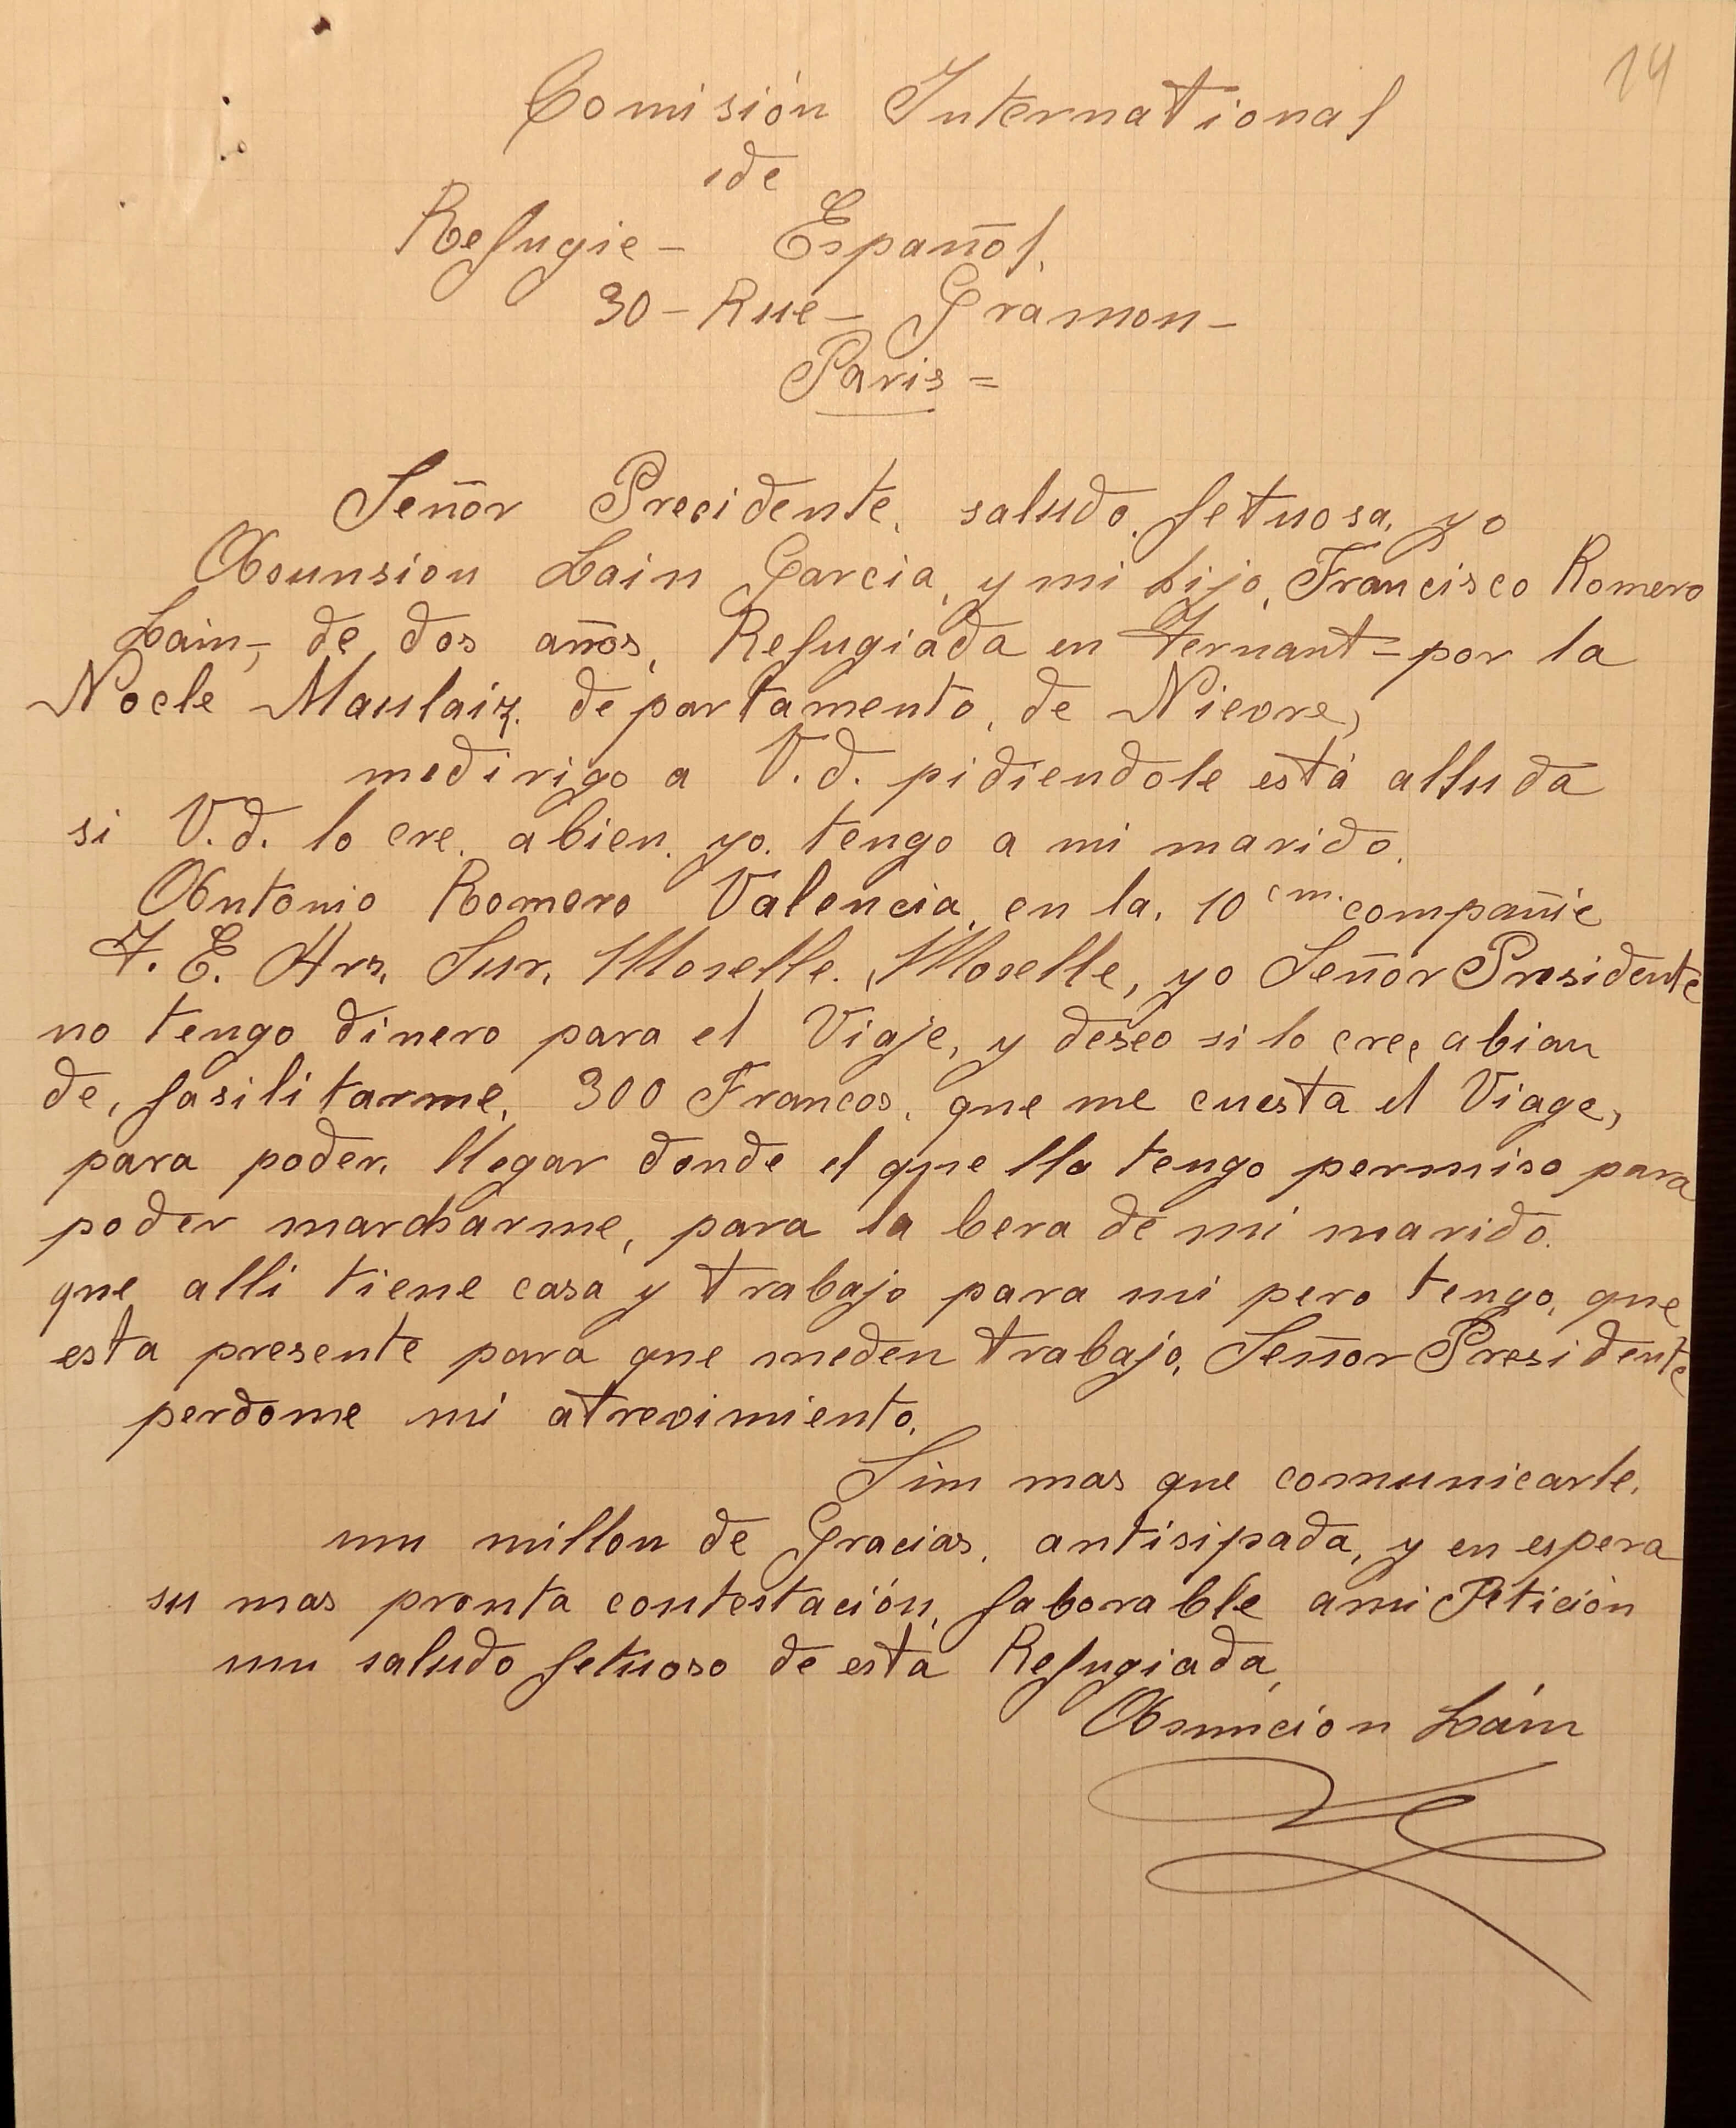 14
Comisión International
de
Refugie - Español,
30 - Rue - Gramon -
Paris =
Señor Precidente, saludo, fetuosa, yo
Asunsion Lain Garcia, y mi hijo, Francisco Romero
Lain, de dos años, Refugiada en Ternant = por la
Nocle Maulaix. departamento, de Nievre,
medirigo a V.d. pidiendole está alluda
si V.d. lo cre. abien. yo. tengo a mi marido.
Antonio Romero Valencia, en la. 10 em. compañie
T. E. Ars, Sur, Moselle. Moselle, yo Señor Presidente
no tengo dinero para el Viaje, y deseo si lo cree abian
de, fasilitarme, 300 Francos, que me cuesta el Viage,
para poder, llegar donde el que lla tengo permiso para
poder marcharme, para la bera de mi marido.
que alli tiene casa y trabajo para mi pero tengo, que
esta presente para que meden trabajo, Señor Presidente
perdome mi atrevimiento,
Sim mas que comunicarle,
un millon de Gracias, antisipada, y en espera
su mas pronta contestación, faborable ami Petición
un saludo fetuoso de está Refugiada,
Asunción Laín